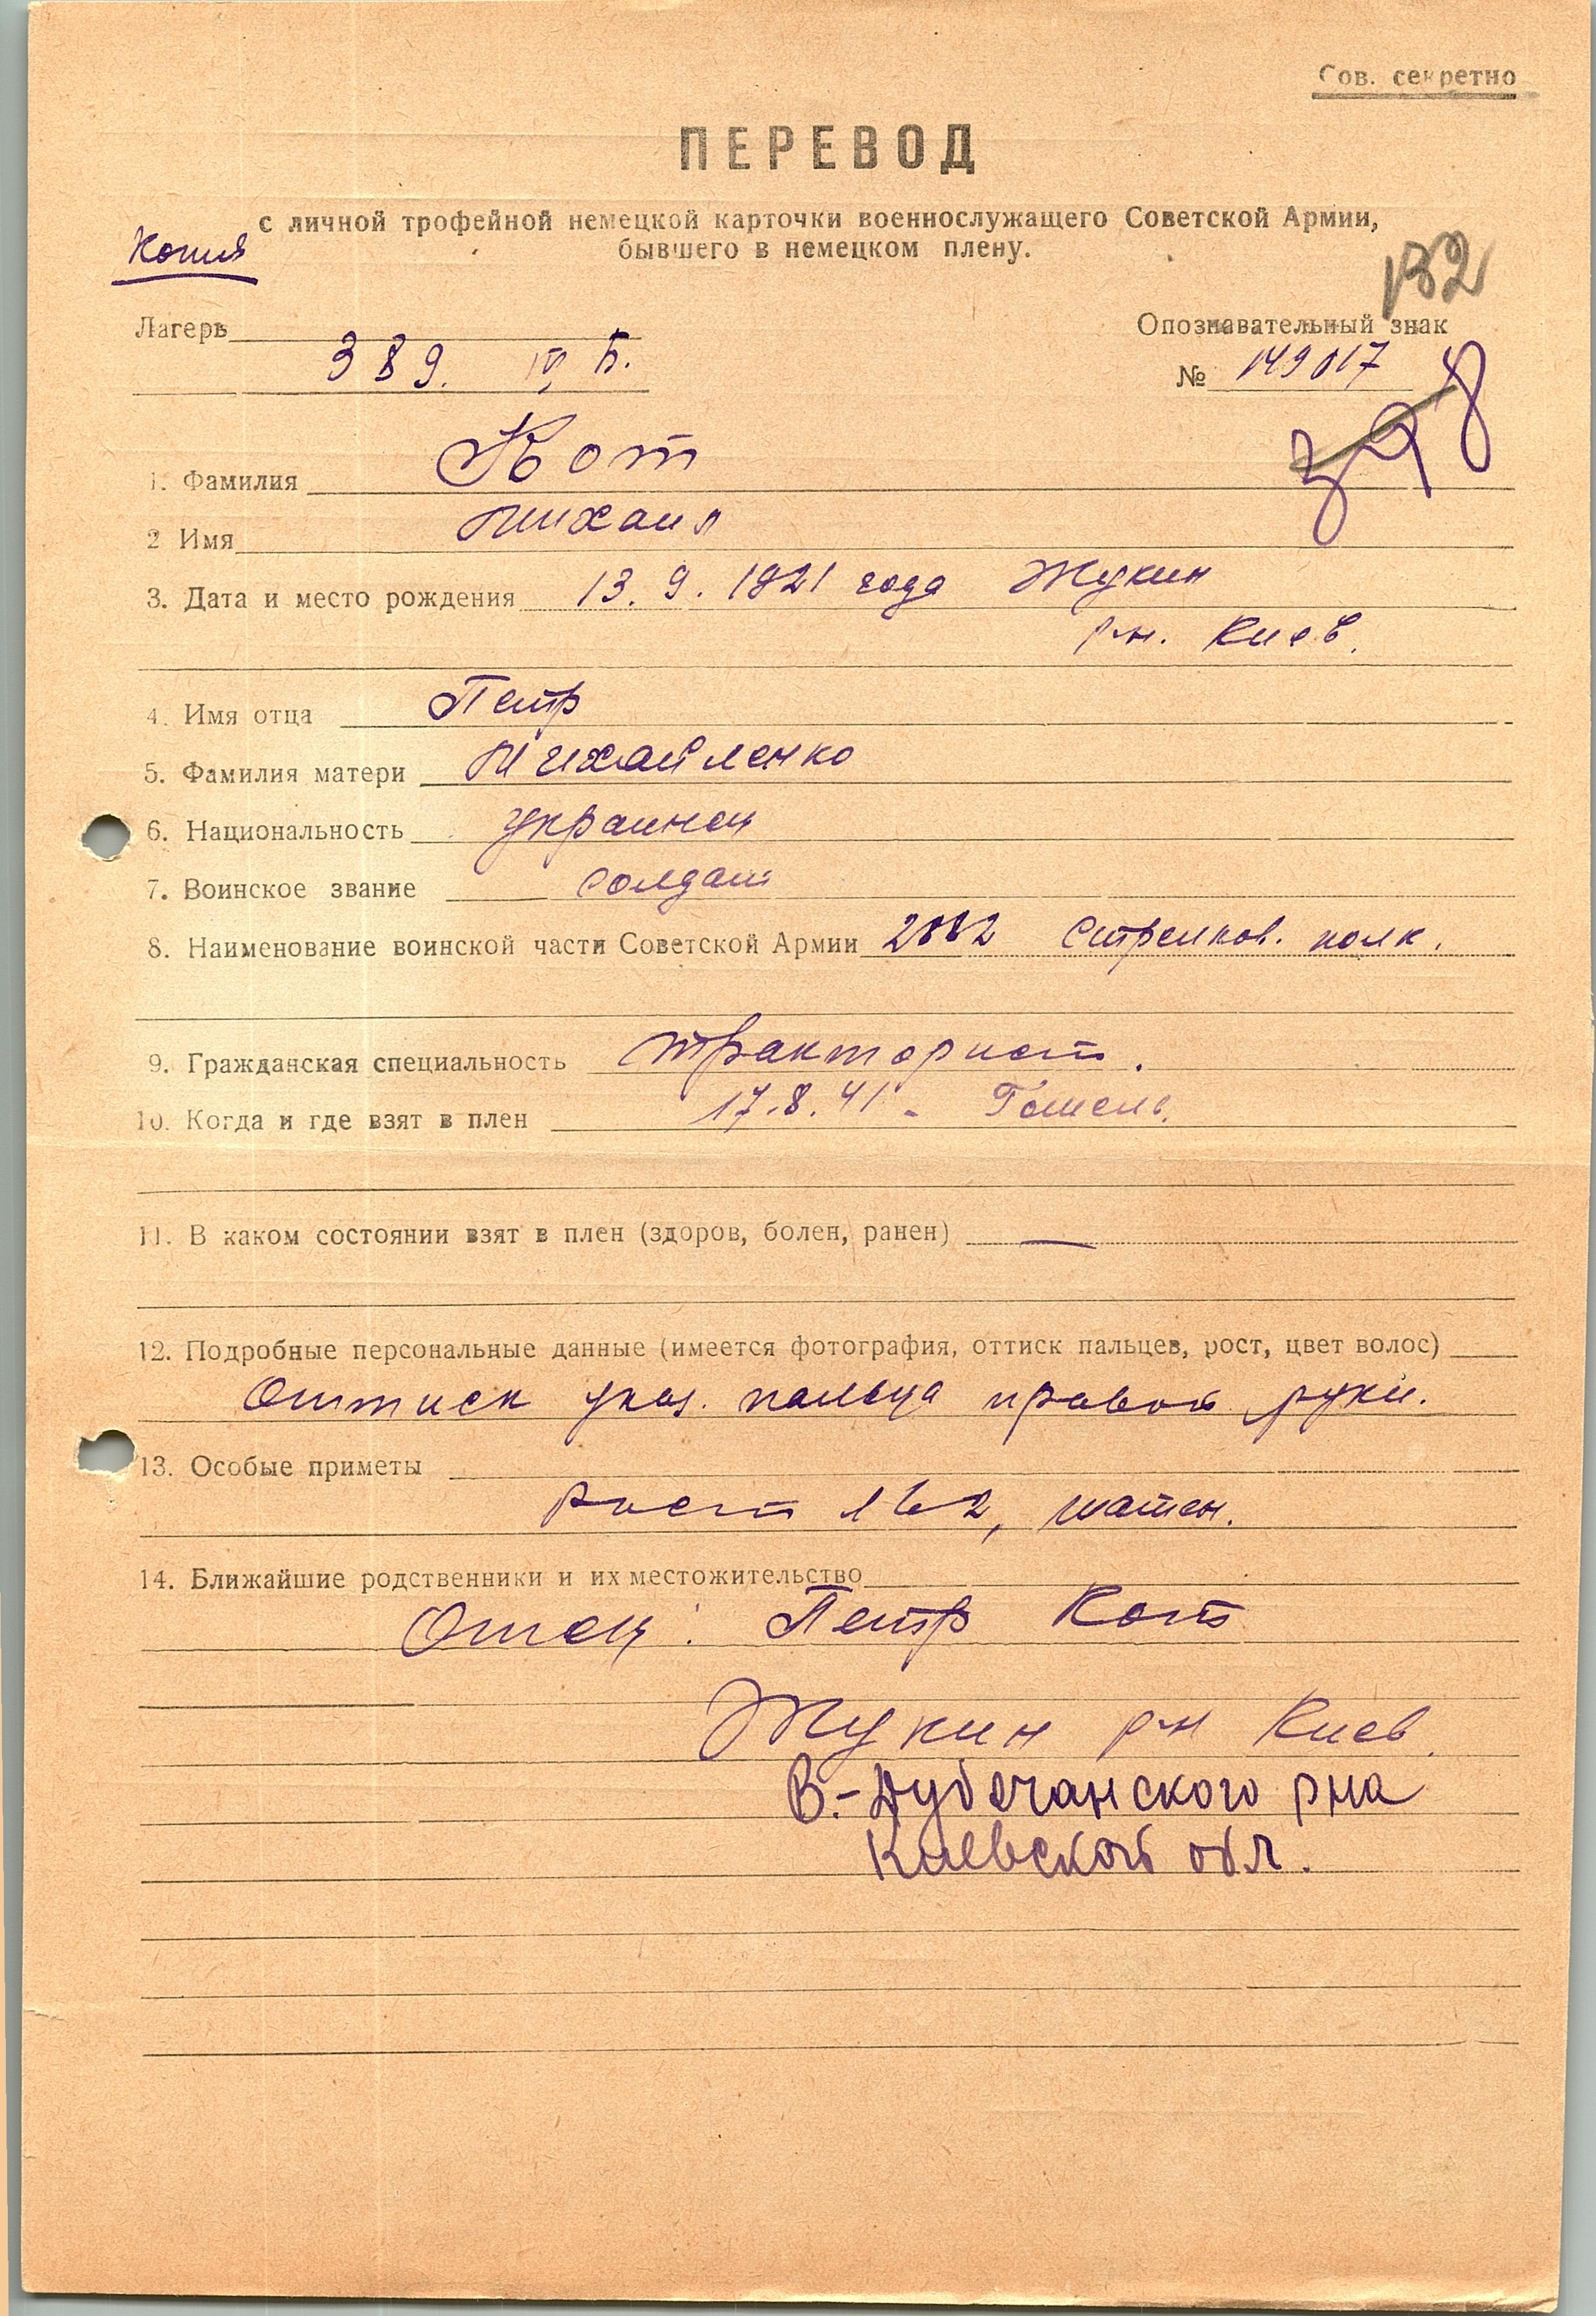 Сов. секретно
ПЕРЕВОД
с личной трофейной немецкой карточки военнослужащего Советской Армии,
бывшего в немецком плену.
Копия
132
Лагерь
389. IV Б.
Опознавательный знак
№ 149017
398
1. Фамилия Кот
2 Имя Михаил
3. Дата и место рождения 13. 9. 1921 года Жукин
р-н. Киев.
4. Имя отца Петр
5. Фамилия матери Михайленко
6. Национальность украинец
7. Воинское звание солдат
8. Наименование воинской части Советской Армии стрелков. полк.
9. Гражданская специальность тракторист.
10. Когда и где взят в плен 17.8.41 - Гомель.
11. В каком состоянии взят в плен (здоров, болен, ранен) —
12. Подробные персональные данные (имеется фотография, оттиск пальцев, рост, цвет волос)
Оттиск указ. пальца правой руки.
13. Особые приметы
Рост 162, шатен.
14. Ближайшие родственники и их местожительство
Отец: Петр Кот
Жукин р-н Киев.
В.-Дубечанского рна
Киевской обл.